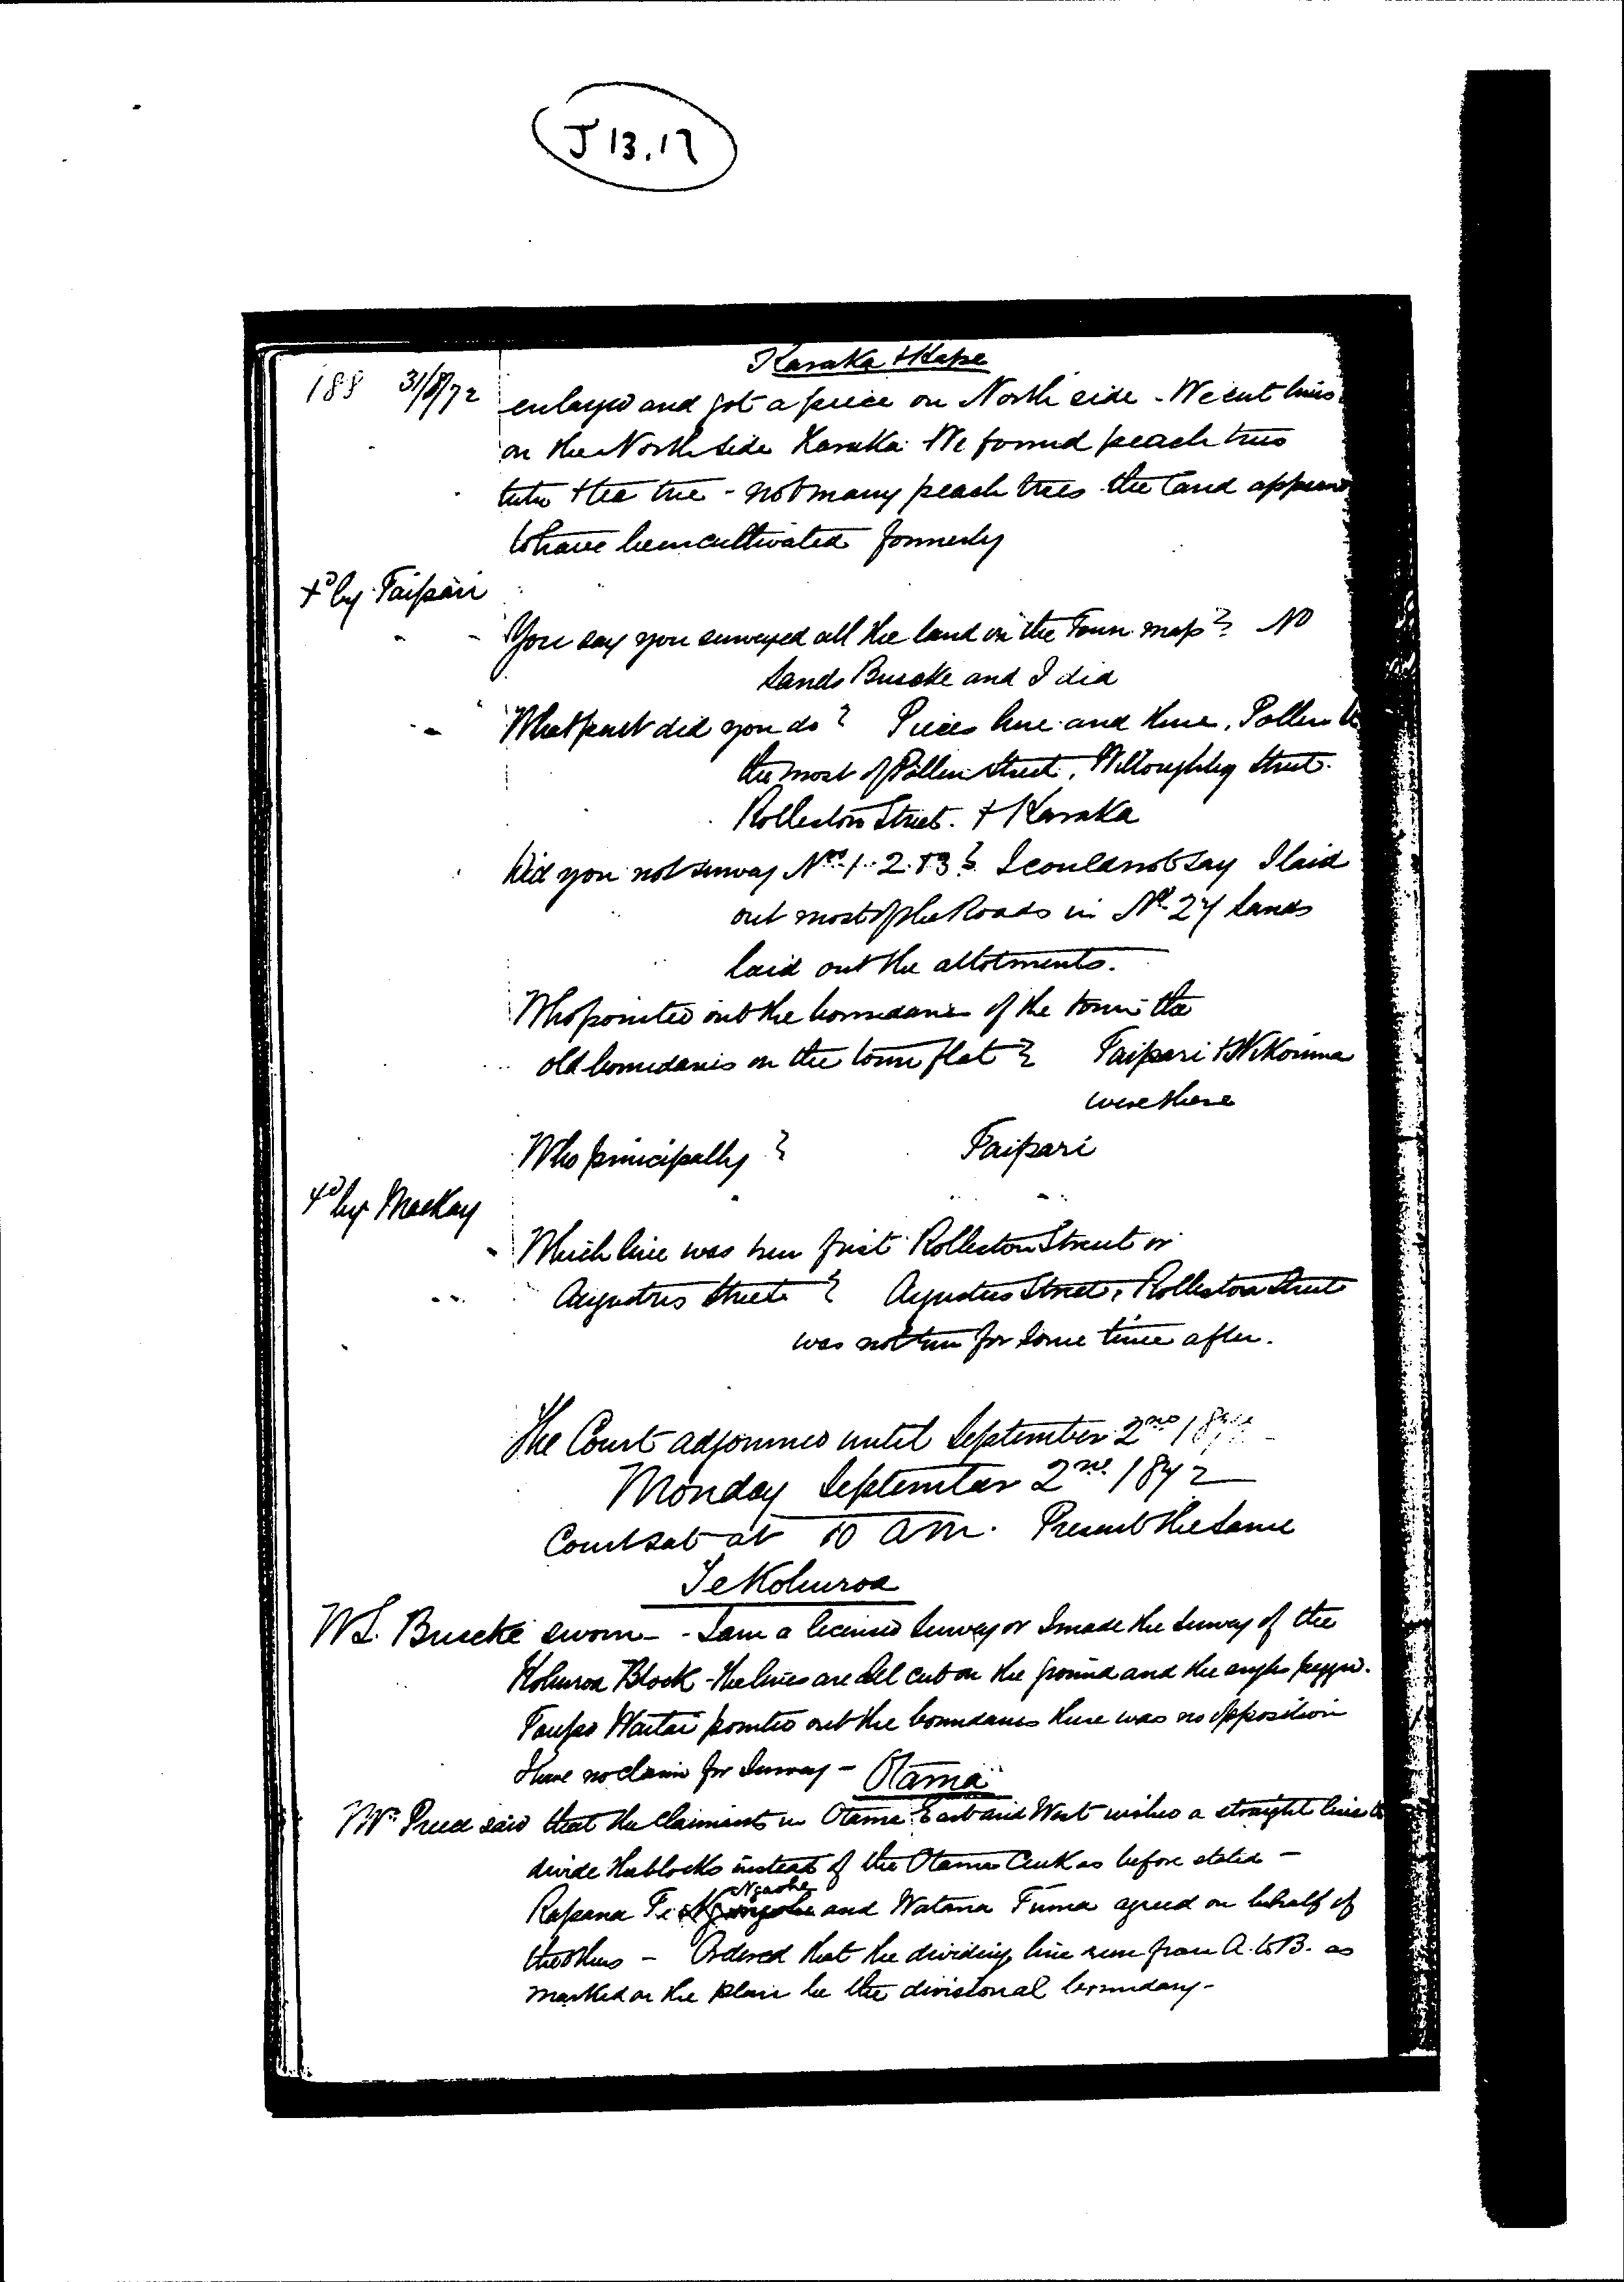 J 13.17
Karaka & Kape
188 31/8/72
enlarged and got a piece on North side - We cut lines
on the North side Karaka We found peach trees
tutu & tea tree - not many peach trees the land appears
to have been cultivated formerly
xd by Taipari
You say you surveyed all the land in the Town map? No
Sands Buscke and I did
What part did you do? Pieces here and there, Pollen
the most of Pollen Street, Willoughby Street.
Rolleston Street. & Karaka
Did you not survey Nos 1. 2. & 3? I could not say I laid
out most of the Roads in No 27 Sands
laid out the allotments.
Who pointed out the boundaries of the town - the
old boundaries on the town flat? Taipari &
were there
Who principally? Taipari
xd by Mackay
Which line was run first Rolleston Street or
Augustus Street? Augustus Street, Rolleston Street
was not run for some time after.
The Court adjourned until September 2nd
Monday September 2nd 1872
Court sat at 10 am. Present the same
Te Kohuroa
W L. Buscke sworn - I am a licensed Surveyor I made the Survey of the
Kohuroa Block - the lines are all cut on the ground and the angles pegged.
Taupo Waitai pointed out the boundaries there was no opposition
I have no claim for Survey - Otama
Mr Preece said that the Claimants in Otama East and West wished a straight line to
divide the blocks instead of the Otama Creek as before stated -
Ngaohe
Rapana Te and Watana Tuma agreed on behalf of
the others - Ordered that the dividing line run from A. to B. as
marked on the plan be the divisional boundary -